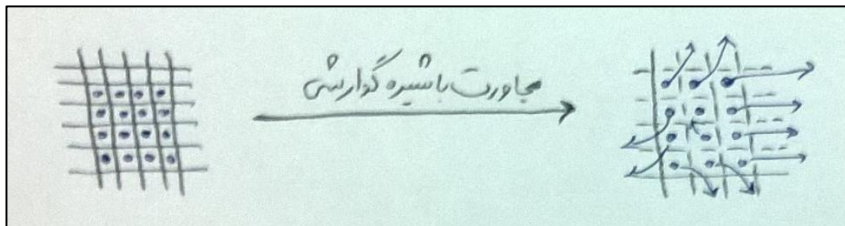 مجاورت با شیره گوارشی